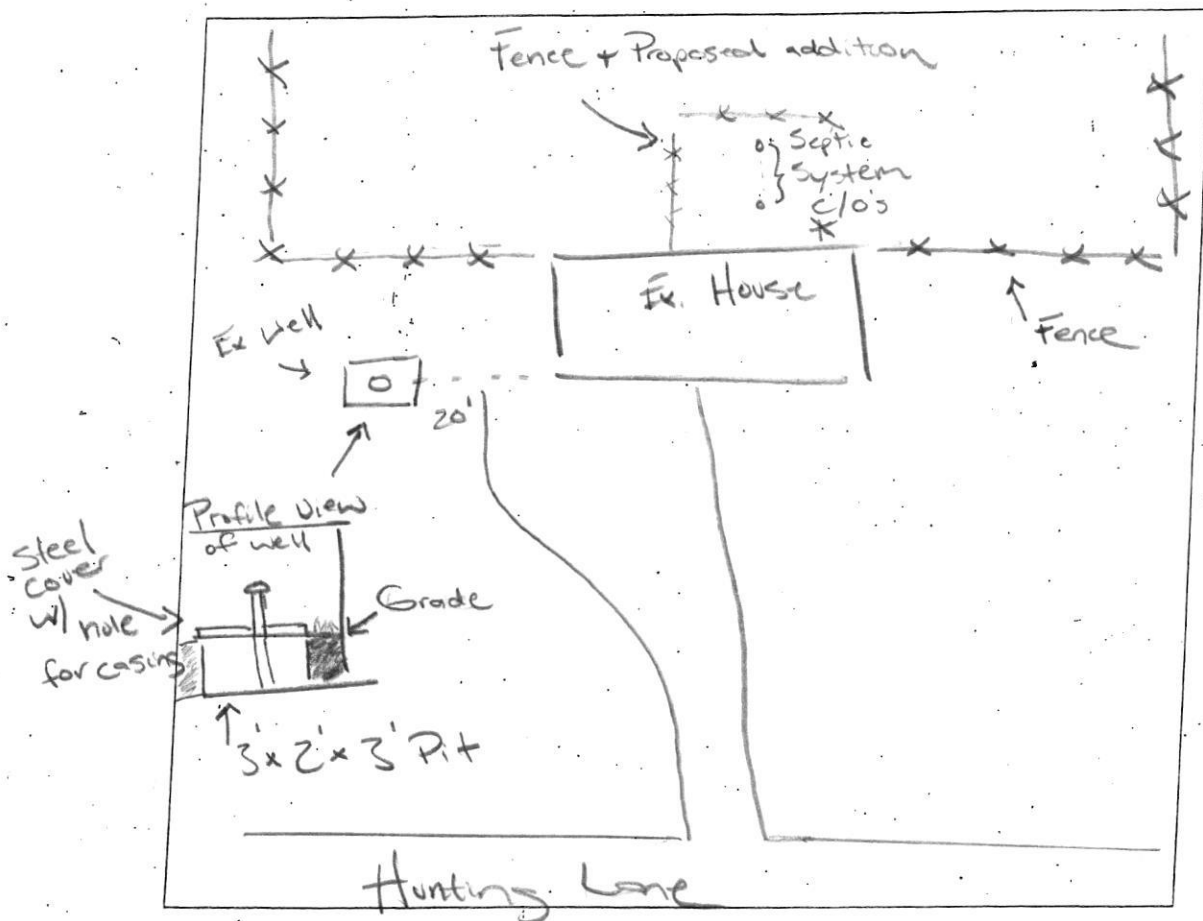 Fence + Proposed addition
Septic
System
c/o's
Ex. House
Fence
Ex well
20'
Profile view
of well
Steel
cover
w/ hole
for casing
Grade
3' x 2' x 3' Pit
Hunting Lane